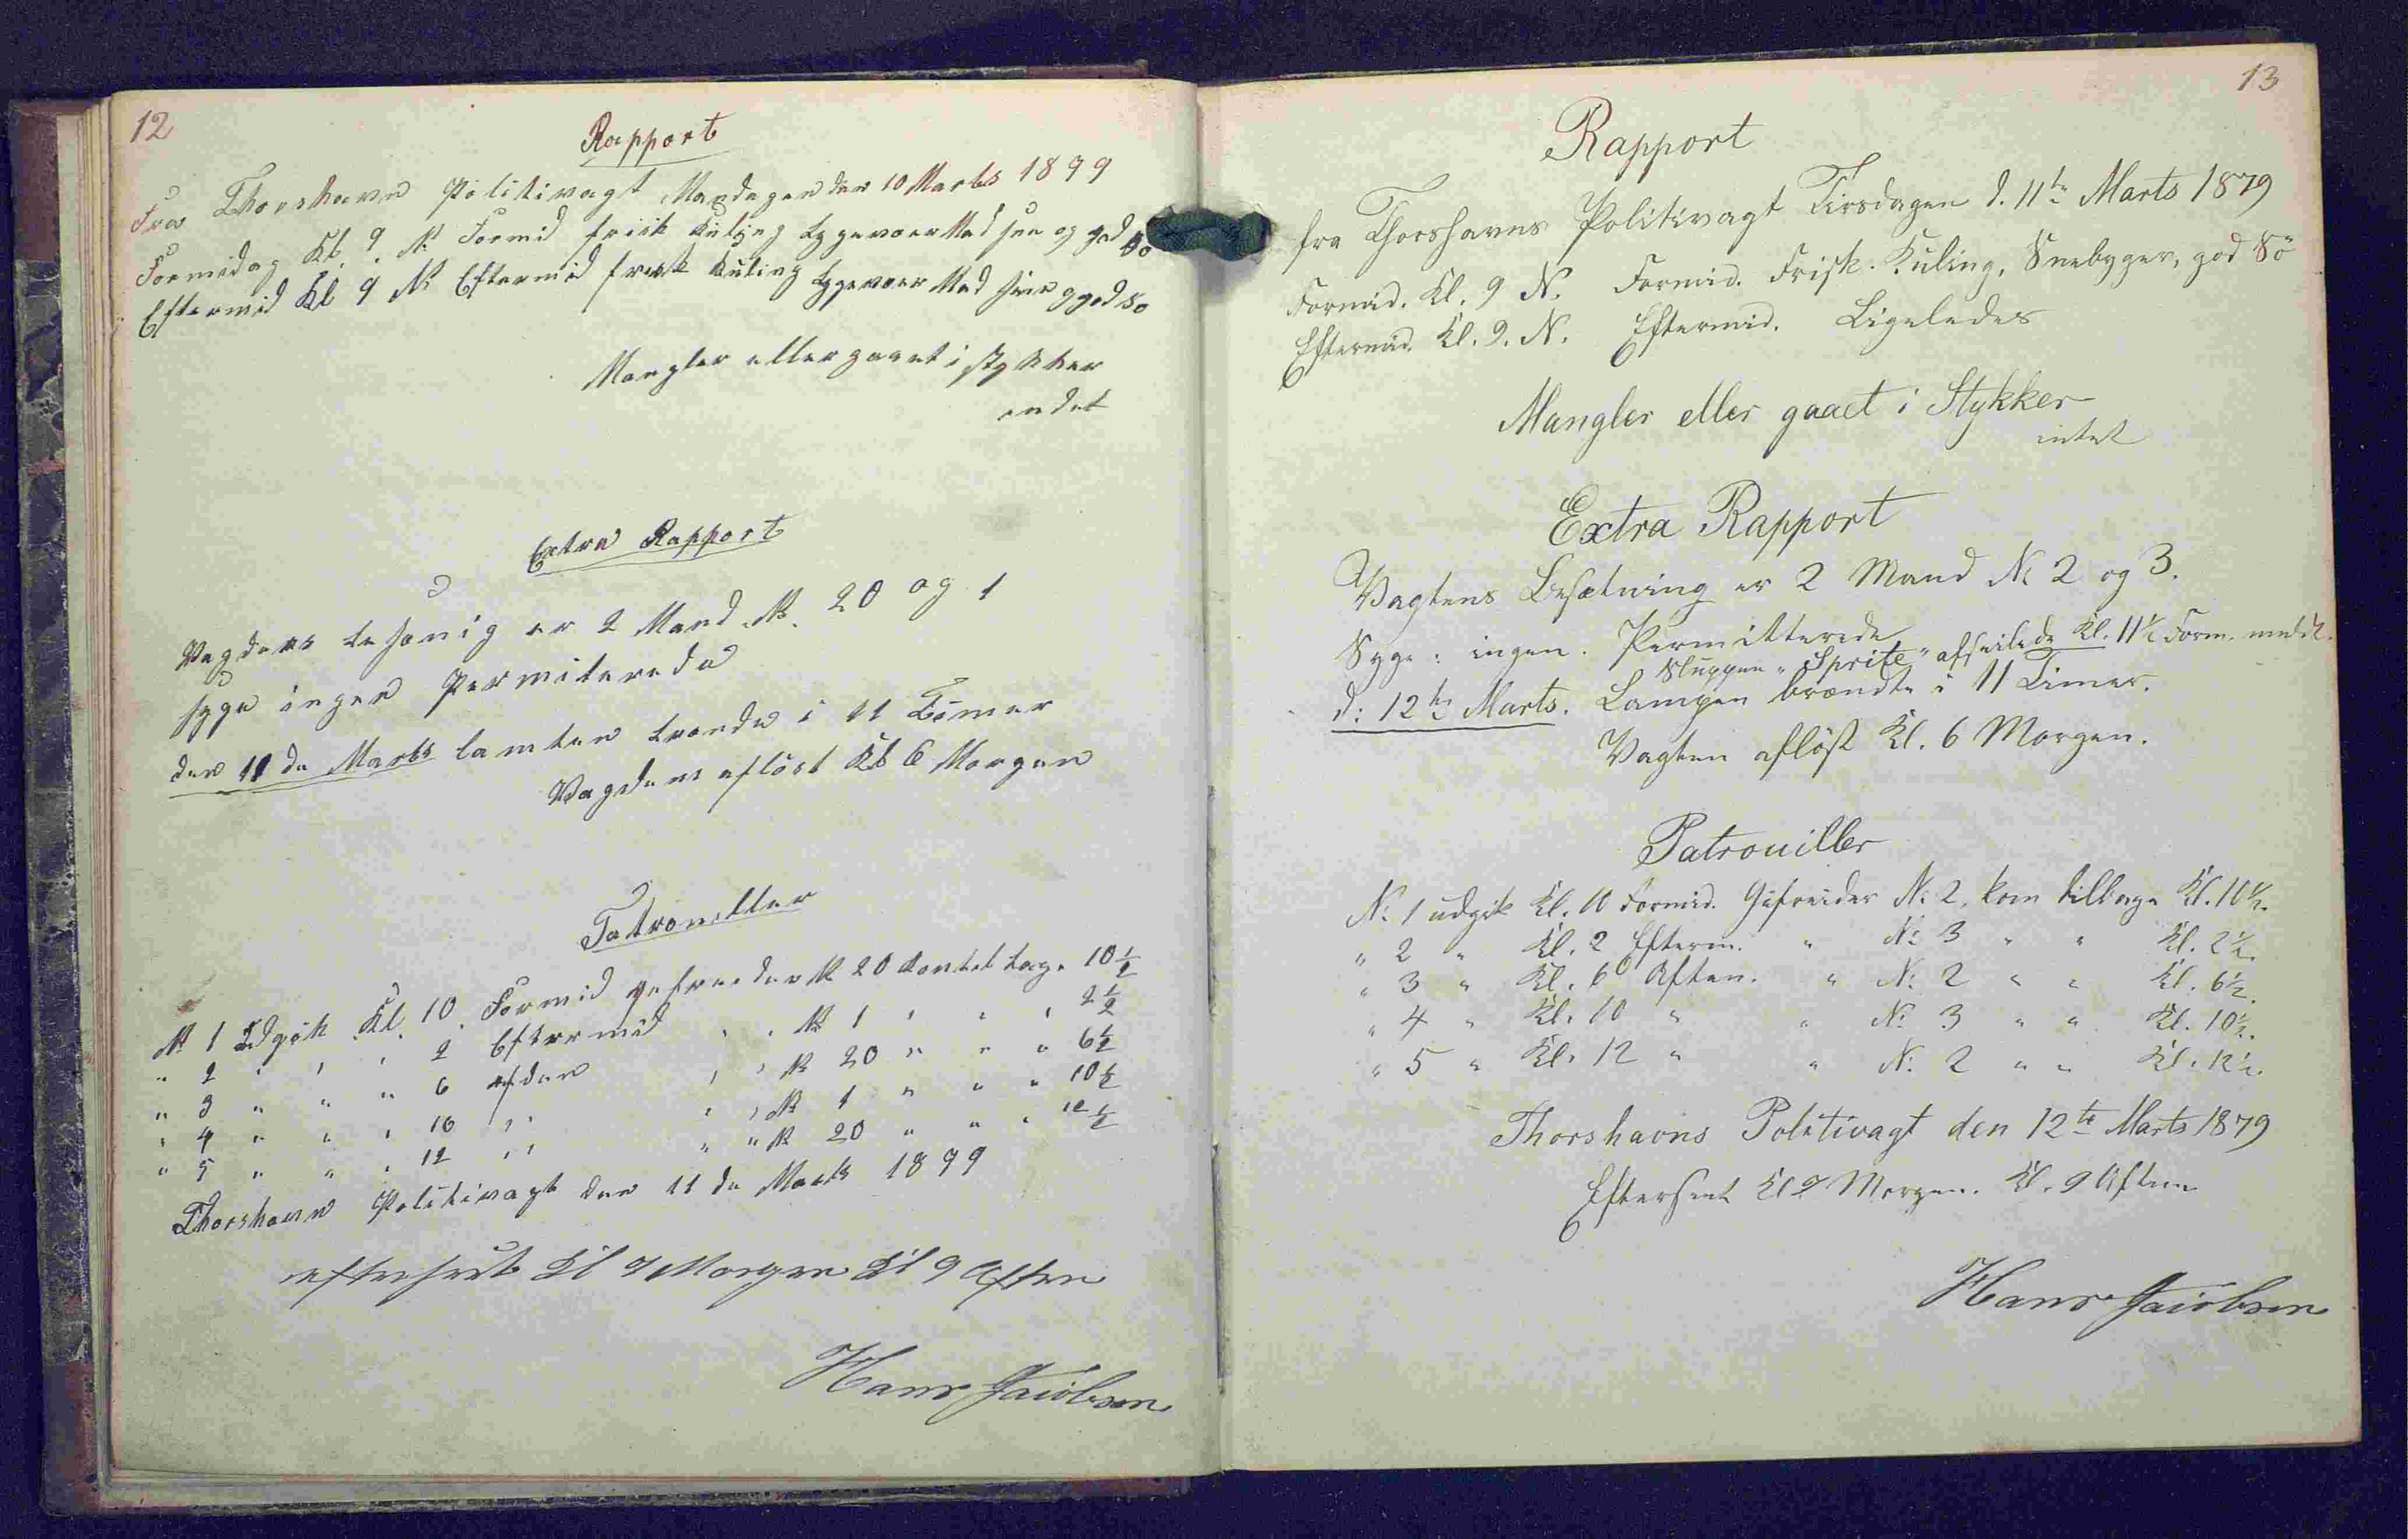 12
Rapport
Fra Thorshavn Politivagt Mandagen den 10 Marts 1879
Formidag Kl. 9 N: Formid frisk Kuling byge voer Med sne og god sö
Eftermid Kl 9 N: Eftermid frisk Kuling bygevoer Med sne g god so
Mangler eller gaaet i stykker
endet
Extra Rapport
Vagdens besonig er 2 Mand N: 20 og 1
syge ingen Permiterede
den 11 de Marts lamten brende i 11 Timer
Vagdens aflöst Kl 6 Morgen
Patrouiller
N: 1 Udgik Kl. 10. Formid gefreider N 20 komtel bage 10 1/2
" 2 " " " 2 Eftermid " " N: 1 " " " 2 1/2
" 3 " " " 6 afden " " N 20 " " " 6 1/2
" 4 " " " 10 " " " N: 1 " " " 10 1/2
" 5 " " " 12 " " " N 20 " " " 12 1/2
Thorshavn Politivagt den 11 de Marts 1879
efterseet Kl 9 Morgen Kl 9 Aften
Hans Jacobsen
13
Rapport
fra Thorshavns Politivagt Tirsdagen d. 11te Marts 1879
Formid. Kl. 9 N. Formid. Frisk. Kuling, Snebyger, god Sö
Eftermid. Kl. 9. N. Eftermid. Ligeledes
Mangler eller gaaet i Stykker
intet
Extra Rapport
Vagtens Besætning er 2 Mand N: 2 og 3.
Syge: ingen. Permitterede
Sluppen "Sprite" afseilede Kl. 11 1/2 Form.
d: 12te Marts. Lampen brændte i 11 Timer.
Vagten aflöst Kl. 6 Morgen.
Patrouiller
N: 1 udgik Kl. 10 Formid. Gefreider N: 2, kom tilbage Kl. 10 1/2.
" 2 " Kl. 2 Efterm. " N: 3 " " Kl. 2 1/2.
" 3 " Kl. 6 Aften. " N: 2 " " Kl. 6 1/2.
" 4 " Kl. 10 " " N: 3 " " Kl. 10 1/2.
" 5 " Kl. 12 " " N: 2 " " Kl. 12 1/2.
Thorshavns Politivagt den 12te Marts 1879
Efterseet Kl 9 Morgen. Kl. 9 Aften
Hans Jacobsen